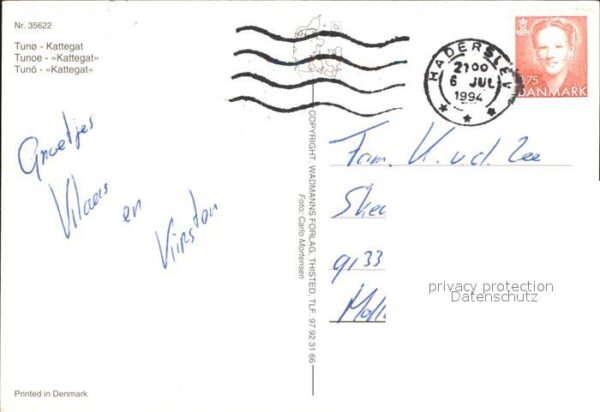 Nr. 35622
Tunø - Kattegat
Tunoe - »Kattegat«
Tunö - »Kattegat«
HADERSLEV
2100
6 JUL
1994
3.75
DANMARK
Groetjes
en
Fam. K. v.d. Lee
9133
privacy protection
Datenschutz
COPYRIGHT. WADMANNS FORLAG, THISTED. TLF. 97 92 31 66
Foto: Carlo Mortensen
Printed in Denmark